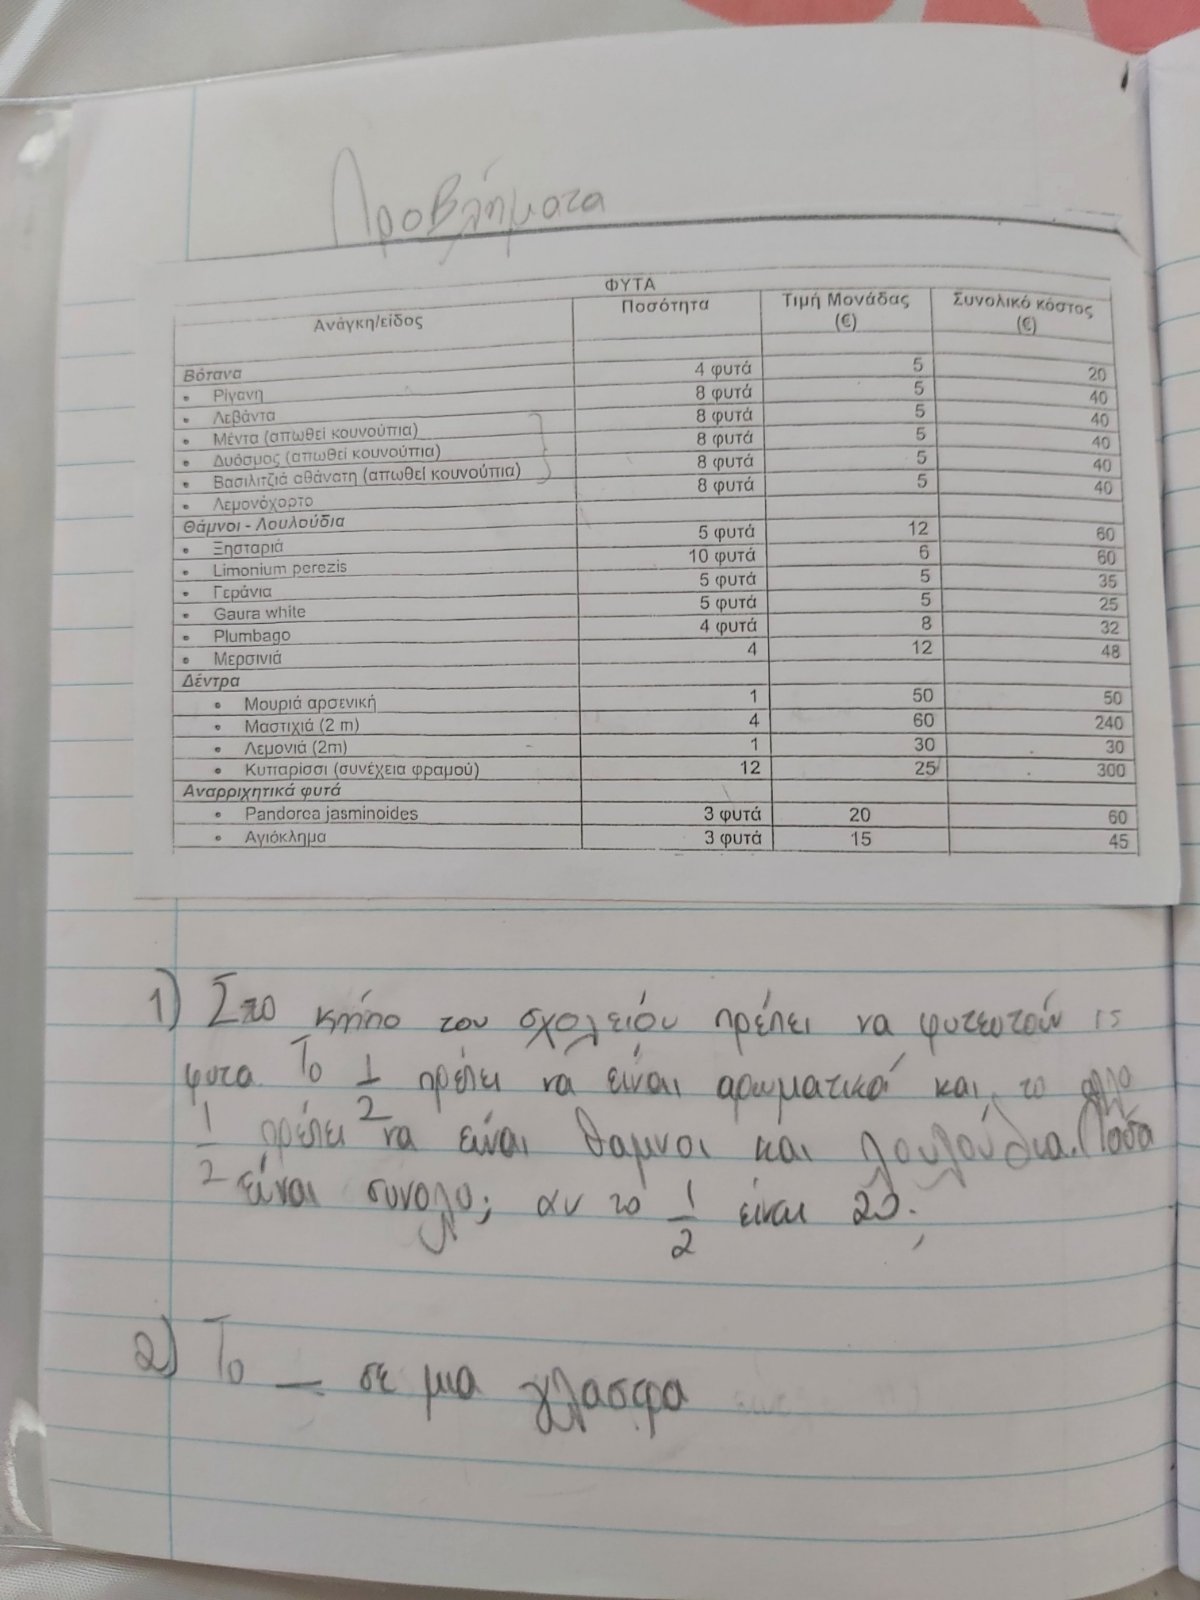 Προβλήματα
ΦΥΤΑ
Ανάγκη/είδος Ποσότητα Τιμή Μονάδας (€) Συνολικό κόστος (€)
Βότανα 4 φυτά 5 20
• Ρίγανη 8 φυτά 5 40
• Λεβάντα 8 φυτά 5 40
• Μέντα (απωθεί κουνούπια) 8 φυτά 5 40
• Δυόσμος (απωθεί κουνούπια) 8 φυτά 5 40
• Βασιλιτζιά αθάνατη (απωθεί κουνούπια) 8 φυτά 5 40
• Λεμονόχορτο
Θάμνοι - Λουλούδια 5 φυτά 12 60
• Ξησταριά 10 φυτά 6 60
• Limonium perezis 5 φυτά 5 35
• Γεράνια 5 φυτά 5 25
• Gaura white 4 φυτά 8 32
• Plumbago 4 12 48
• Μερσινιά
Δέντρα
• Μουριά αρσενική 1 50 50
• Μαστιχιά (2 m) 4 60 240
• Λεμονιά (2m) 1 30 30
• Κυπαρίσσι (συνέχεια φραμού) 12 25 300
Αναρριχητικά φυτά
• Pandorea jasminoides 3 φυτά 20 60
• Αγιόκλημα 3 φυτά 15 45
1) Στο κήπο του σχολειόυ πρέπει να φυτευτούν
φυτα. Το 1/2 πρέπει να είναι αρωματικά και το αλλο
1/2 πρέπει να είναι θαμνοι και λουλούδια. Πόσα
είναι συνολο; αν το 1/2 είναι 20;
2) Το — σε μια γλασερα